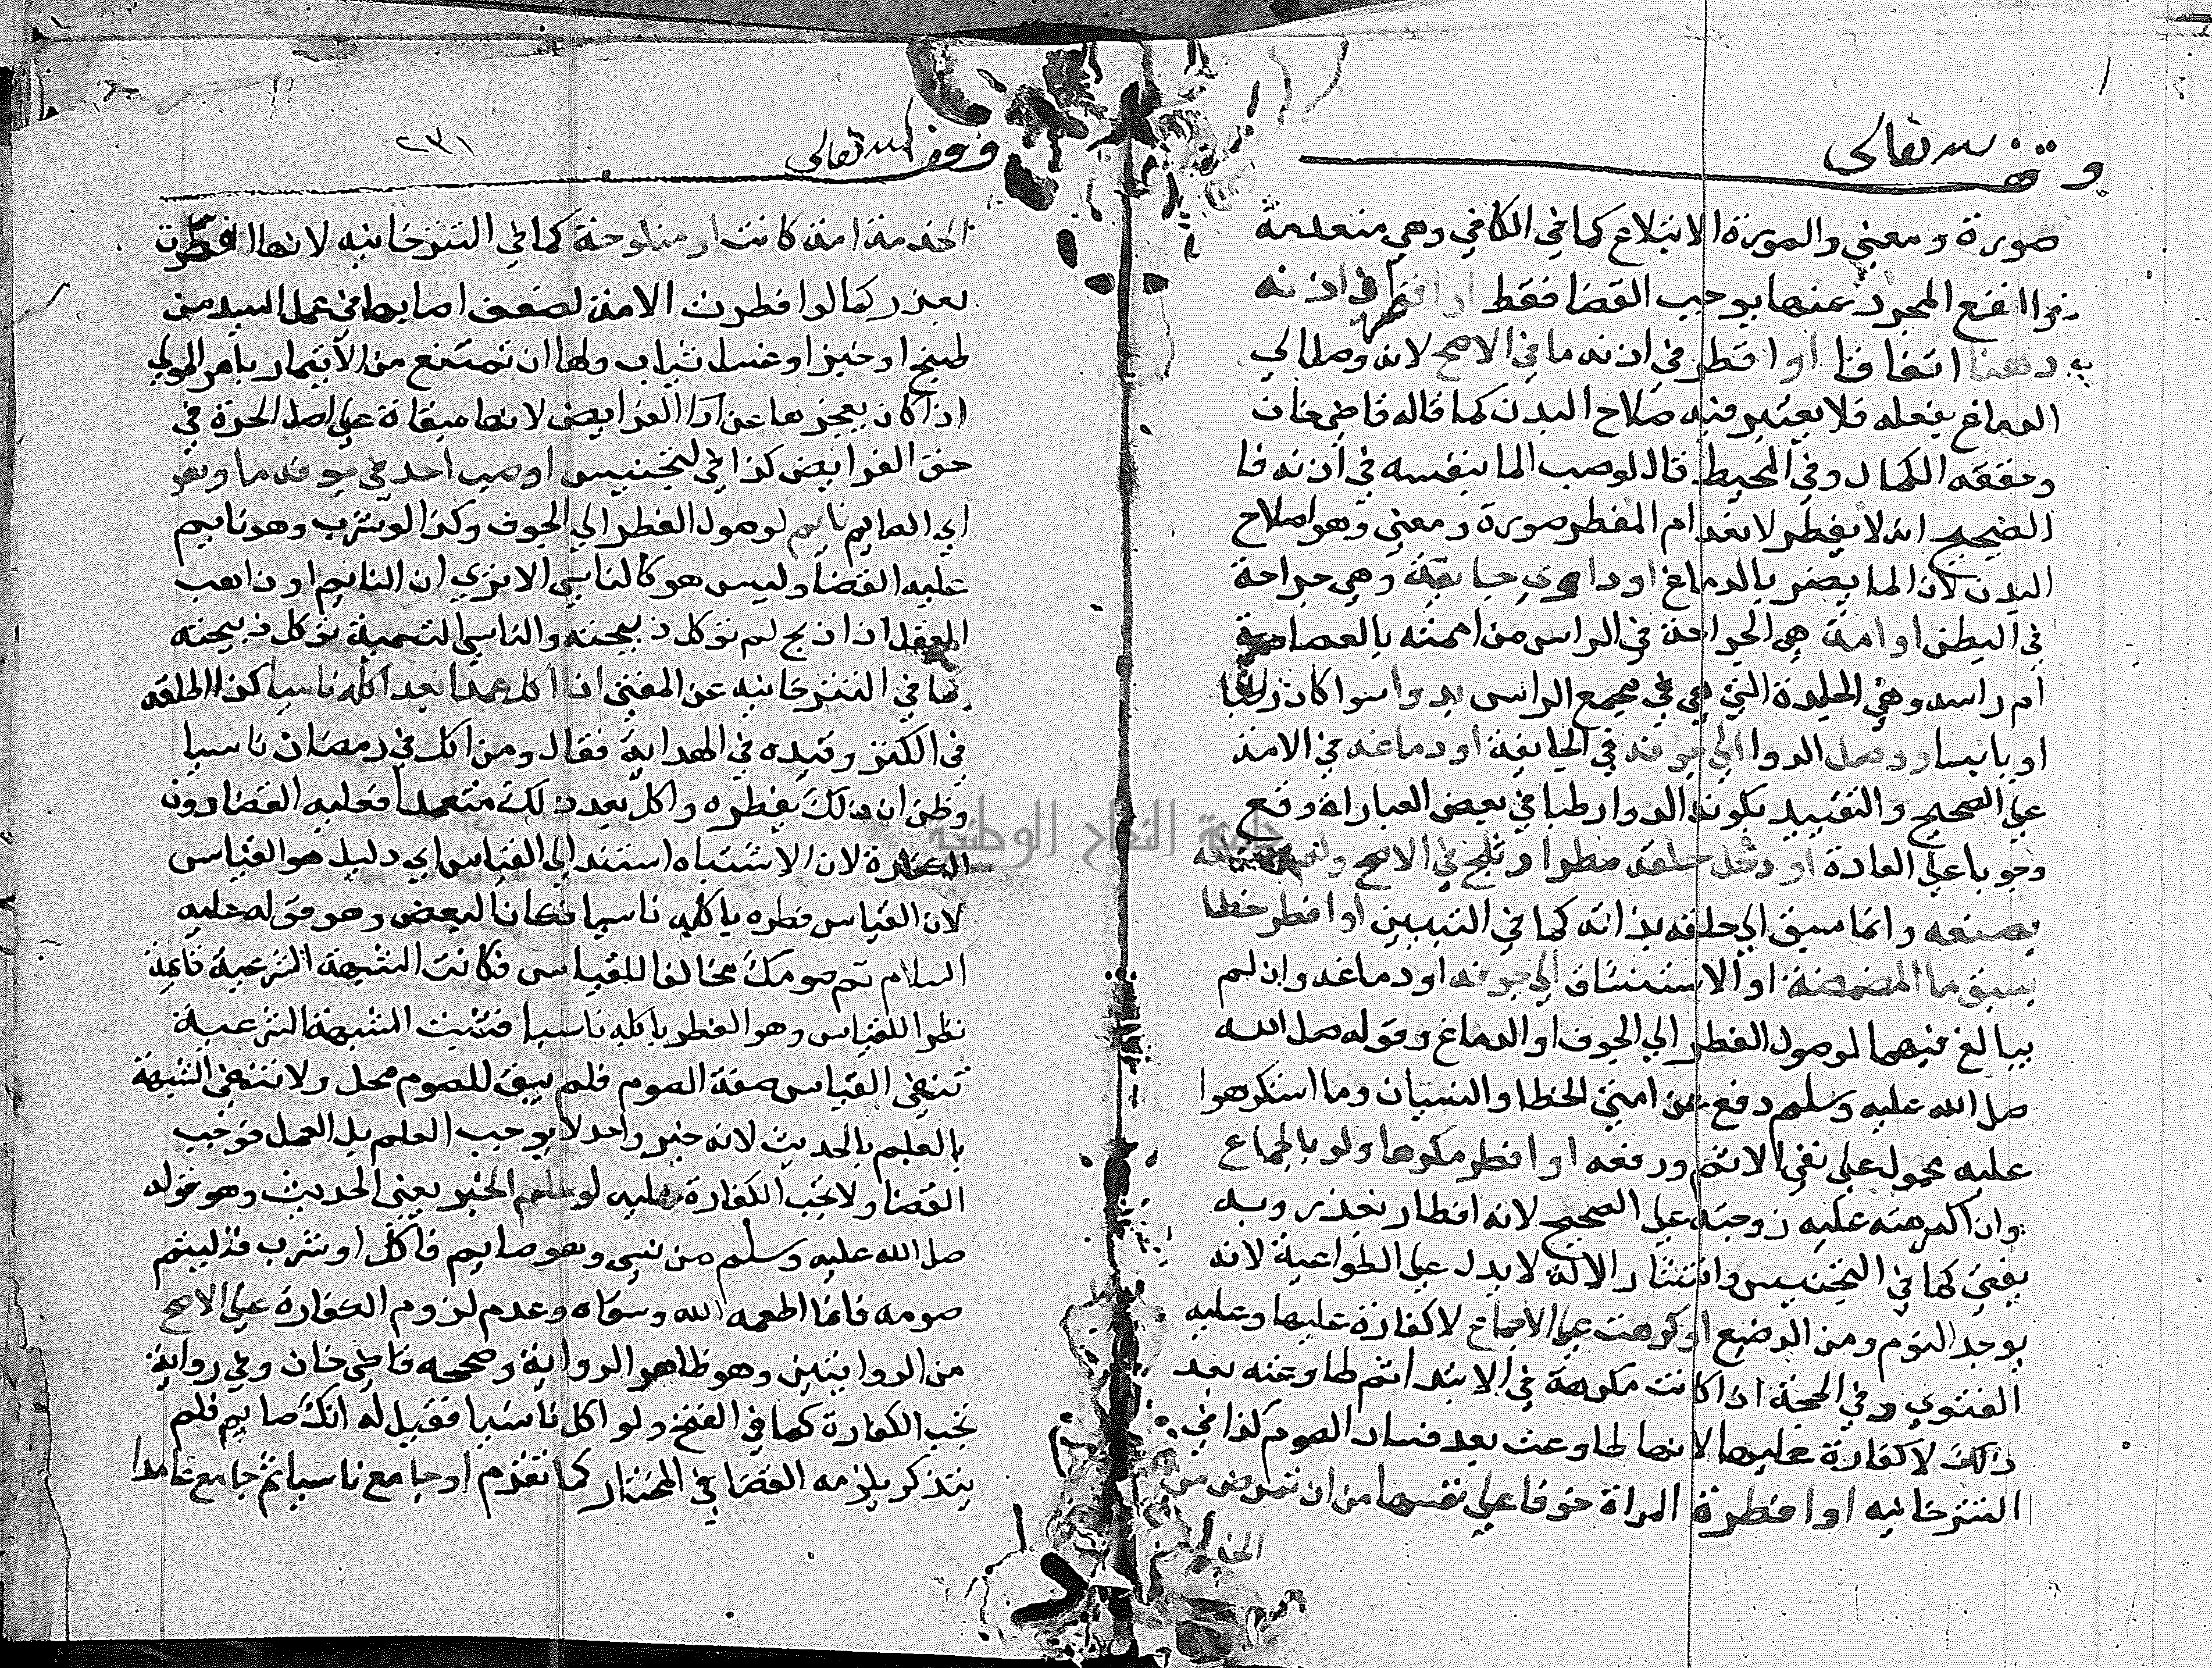 وقف لله تعالى
صورة ومعنى والصورة الابتلاع كما في الكافي وهي منعدمة
والنفع المجرد عنها يوجب القضا فقط او اقطر في اذنه
دهنا اتفاقا او اقطر في اذنه ما في الاصح لانه وصل الي
الدماغ بفعله فلا يعتبر فيه صلاح البدن كما قاله قاضي خان
وحققه الكمال وفي المحيط قال لو صب الما بنفسه في اذنه فا
الصحيح انه لا يفطر لانعدام المفطر صورة ومعني وهو اصلاح
البدن لان الما يضر بالدماغ او داوي جايفة وهي جراحة
في البطن او امة هي الجراحة في الراس من اممته بالعصا
ام راسه وهي الجلدة التي هي في مجمع الراس بدوا سوا كان رطبا
او يابسا ووصل الدوا الي جوفه في الجايفة او دماغه في الامة
علي الصحيح والتقييد بكون الدوا رطبا في بعض العبارات وقع
وجويا علي العادة او دخل حلقه مطرا وثلج في الاصح ولم
بصنعه وانما سبق الي حلقه بذاته كما في التبيين او افطر خطا
بسبق ما المضمضة او الاستنشاق الي جوفه او دماغه وان لم
يبالغ فيهما لوصول الفطر الي الجوف او الدماغ وقوله صل الله
صل الله عليه وسلم رفع عن امتي الخطا والنسيان وما استكرهوا
عليه محمول علي نفي الاثم ورفعه او افطر مكرها ولو بالجماع
وان اكرهته عليه زوجته علي الصحيح لانه افطار بعذر وبه
يفتي كما في التجنيس وانتشار الالة لا يدل علي الطواعية لانه
يوجد النوم ومن الرضيع او كرهت علي الاجماع لا كفارة عليها وعليه
الفتوي وفي الحجة اذا كانت مكرهة في الابتدا ثم طاوعته بعد
ذلك لا كفارة عليها لانها طاوعت بعد فساد الصوم كذا في
التتر خانيه او افطرة المراة خوفا علي نفسها من ان تمرض من
الخ
وقف لله تعالى
٢٣١
الخدمة امة كانت او منكوحة كما في التتر خانيه لانها افطرت
بعذر كما لو افطرت الامة لضعف اصابها في عمل السيد من
طبخ او خبز او غسل ثياب ولها ان تمتنع من الايتمار بامر المولي
اذا كان يعجزها عن ادا الفرايض لانها مبقاة علي اصل الحرة في
حق الفرايض كذا في التجنيس او صب احد في جوفه ما وهو
اي الصايم نايم لوصول الفطر الي الجوف وكذا لو شرب وهو نايم
عليه القضا وليس هو كالناسي الا يري ان النايم او ذاهب
العقل اذا ذبح لم توكل ذبيحته والناسي لتسمية توكل ذبيحته
كما في التتر خانيه عن المفتي او اكل عمدا بعد اكله ناسيا كذا اطلقه
في الكنز وقيده في الهداية فقال ومن اكل في رمضان ناسيا
وظن ان ذلك يفطره واكل بعد ذلك متعمدا فعليه القضا دون
الكفارة لان الاشتباه استند الي القياس اي دليل هو القياس
لان القياس فطره باكله ناسيا فكان البعض وهو قوله عليه
السلام تم صومك مخالفا للقياس فكانت الشبهة الشرعية قايمة
نظرا للقياس وهو الفطر باكله ناسيا فتثبت الشبهة الشرعية
تنفي القياس صفة الصوم فلم يبق للصوم محل ولا تنتفي الشبهة
بالعلم بالحديث لانه خبر واحد لا يوجب العلم بل العمل فوجب
القضا ولا تجب الكفارة عليه لو علم الخبر يعني الحديث وهو قوله
صل الله عليه وسلم من نسي وهو صايم فاكل او شرب فليتم
صومه فانما اطعمه الله وسقاه وعدم لزوم الكفارة علي الاصح
من الروايتين وهو ظاهر الرواية وصححه قاضي خان وفي رواية
تجب الكفارة كما في الفتح ولو اكل ناسيا فقيل له انك صايم فلم
يتذكر يلزمه القضا في المختار كما تقدم او جامع ناسيا ثم جامع عامدا
جامعة النجاح الوطنية